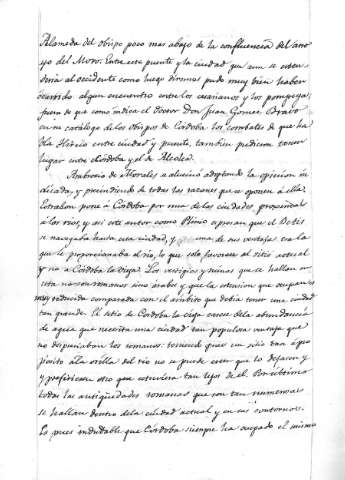 Alameda del obispo poco mas abajo de la confluencia del arro
yo del Moro. Entre este puente y la ciudad que aun se esten
deria al occidente como luego diremos pudo muy bien haber
ocurrido algun encuentro entre los cesarianos y los pompeya
fuera de que como indica el doctor Don Juan Gomez Bravo
en su catálogo de los obispos de Córdoba los combates de que ha
bla Hircio entre ciudad y puente, tambien pudieron tener
lugar entre Córdoba y el de Alcolea.
Ambrosio de Morales se alucinó adoptando la opinion in
dicada, y prescindiendo de todas las razones que se oponen á ella.
Estrabon pone á Córdoba por una de las ciudades, proximas
á los rios, y asi este autor como Plinio espresan que el Betis
se navegaba hasta esta ciudad, y una de sus ventajas era la
que le proporcionaba el rio, lo que solo favorece al sitio actual
y no a Córdoba la Vieja. Los vestigios y ruinas que se hallan en
esta no son romanos sino árabes y que la estension que ocupan es
muy reducida comparada con el ámbito que debia tener una ciudad
tan grande. El sitio de Cordoba la vieja carece de la abundancia
de agua que necesita una ciudad tan populosa ventaja que
no despreciaban los romanos: teniendo pues un sitio tan á pro
pósito á la orilla del rio no se puede creer que lo dejasen y
y prefiriesen otro que estuviera tan lejos de él. Por último
todas las antigüedades romanas que son tan numerosas
se hallan dentro de la ciudad actual y en sus contornos.
Es pues indudable que Córdoba siempre ha ocupado el mismo